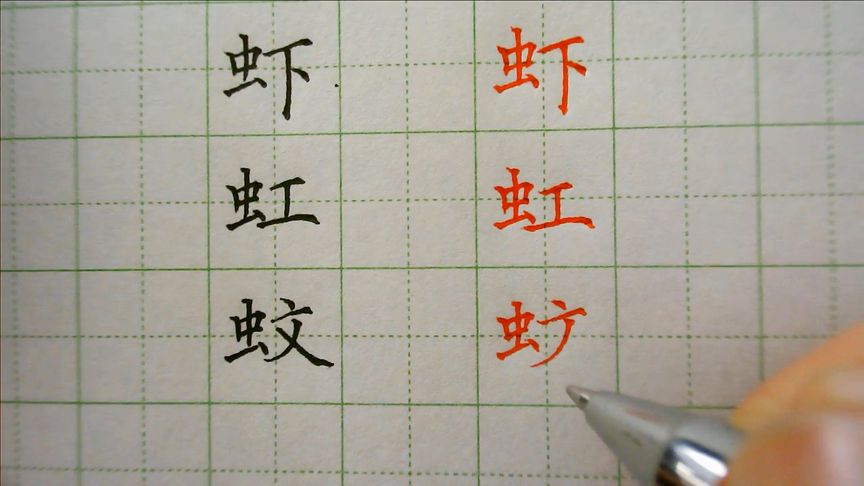 虾 虾
虹 虹
蚊